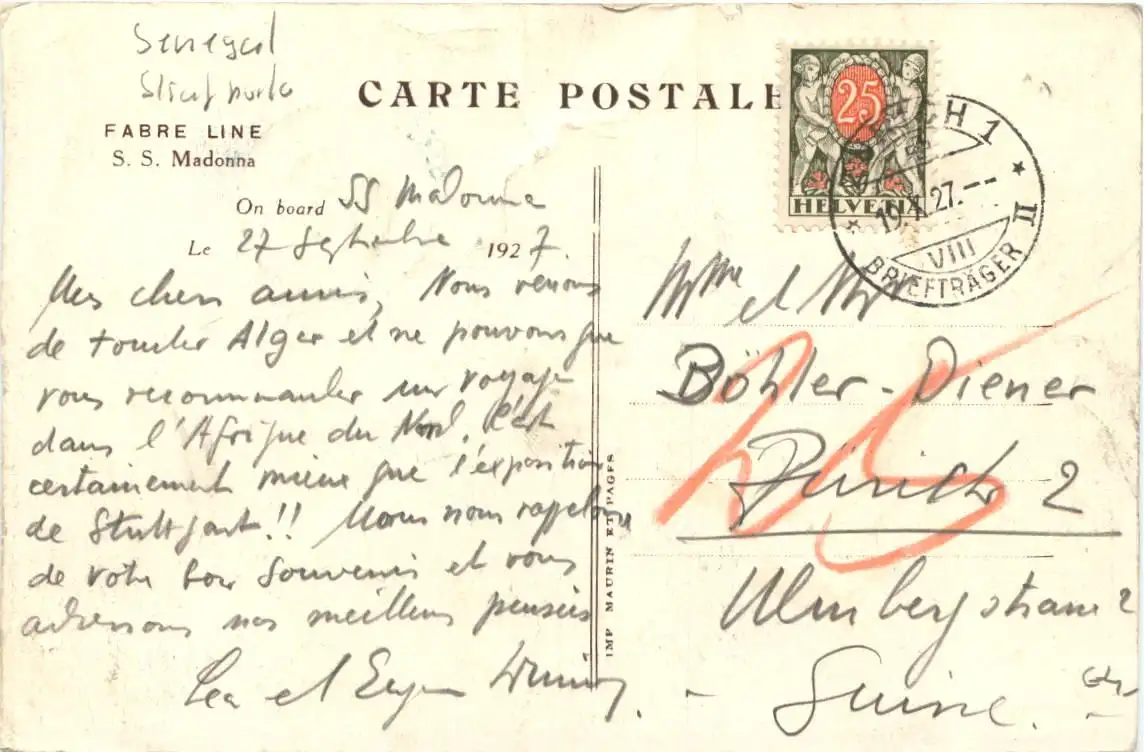 Senegal
CARTE POSTALE
FABRE LINE
S. S. Madonna
On board SS Madonna
Le 27 Septembre 1927.
Mes chers amis, Nous venons
de toucher Alger et ne pouvons que
vous recommander un voyage
dans l'Afrique du Nord. C'est
certainement mieux que l'exposition
de Stuttgart!! Nous nous rappelons
de votre bon souvenir et vous
adressons nos meilleures pensées
Lea et Eugen
IMP MAURIN ET PAGES
25
HELVETIA
CH 1
19. 27.--
VIII
II
BRIEFTRÄGER
Mme et Mr
Böhler-Diener
Zürich 2
25
Ulmbergstrasse 2
Suisse.